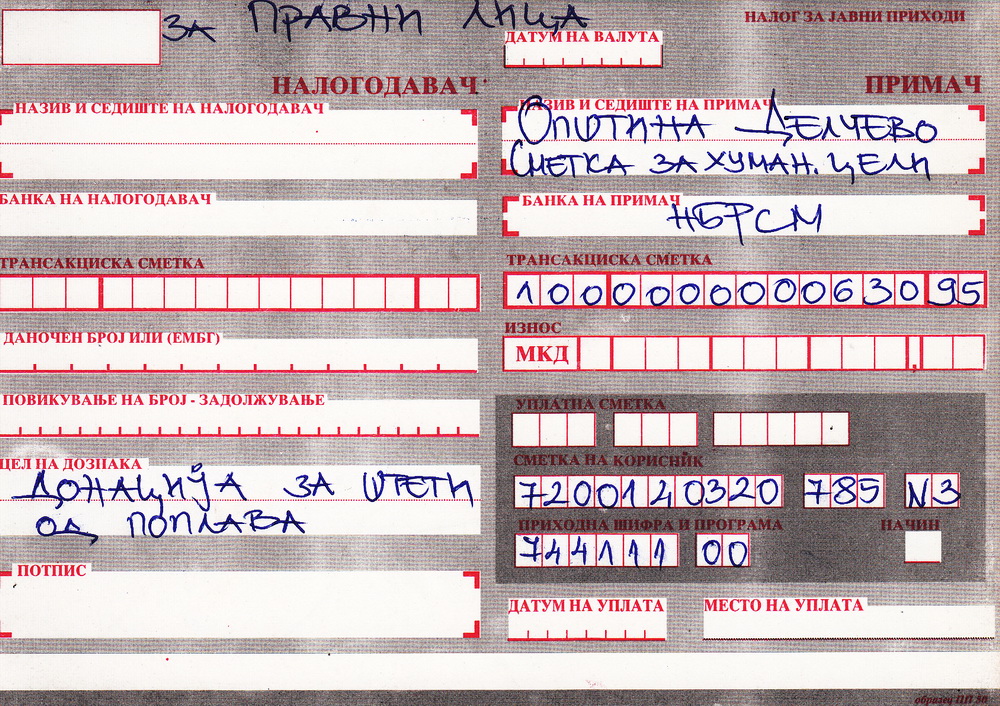 за ПРАВНИ ЛИЦА
НАЛОГ ЗА ЈАВНИ ПРИХОДИ
ДАТУМ НА ВАЛУТА
НАЛОГОДАВАЧ
НАЗИВ И СЕДИШТЕ НА НАЛОГОДАВАЧ
БАНКА НА НАЛОГОДАВАЧ
ТРАНСАКЦИСКА СМЕТКА
ДАНОЧЕН БРОЈ ИЛИ (ЕМБГ)
ПОВИКУВАЊЕ НА БРОЈ - ЗАДОЛЖУВАЊЕ
ЦЕЛ НА ДОЗНАКА
ДОНАЦИЈА ЗА ШТЕТИ
ОД ПОПЛАВА
ПОТПИС
ПРИМАЧ
НАЗИВ И СЕДИШТЕ НА ПРИМАЧ
ОПШТИНА ДЕЛЧЕВО
СМЕТКА ЗА ХУМАН. ЦЕЛИ
БАНКА НА ПРИМАЧ
НБРСМ
ТРАНСАКЦИСКА СМЕТКА
100000000063095
ИЗНОС
МКД ,
УПЛАТНА СМЕТКА
СМЕТКА НА КОРИСНИК
7200140320 785 N3
ПРИХОДНА ШИФРА И ПРОГРАМА НАЧИН
744111 00
ДАТУМ НА УПЛАТА МЕСТО НА УПЛАТА
образец ПП 50